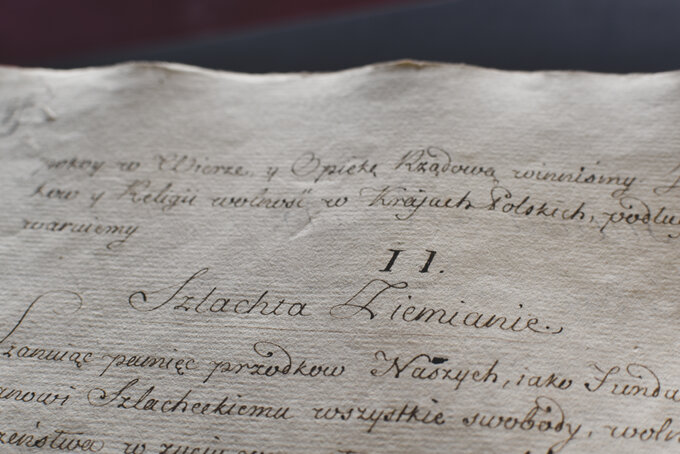 pokoy w Wierze y Opiekę Rządową winniśmy
kow y Religii wolność w Kraiach Polskich, podlug
waruiemy
II.
Szlachta Ziemianie.
Szanuiąc pamięc przodkow Naszych, iako Fundu
anowi Szlacheckiemu wszystkie swobody, woln
zeństwa w życiu